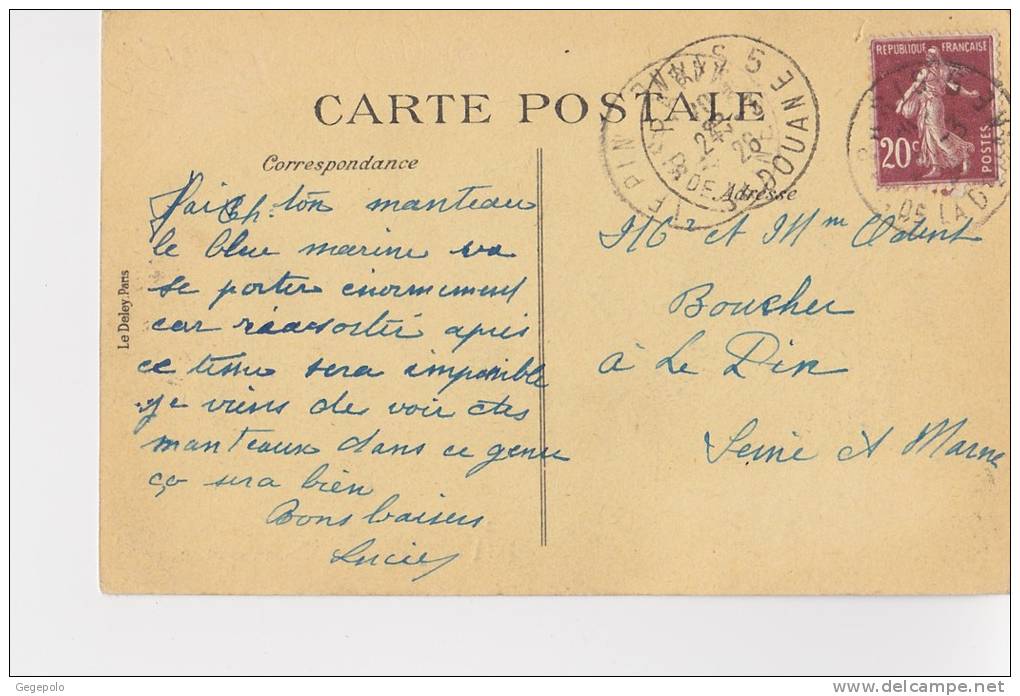 CARTE POSTALE
Correspondance
Adresse
ton manteau
le bleu marine va
se porter enormement
car réassortir après
ce tissu sera imposible
je viens de voir des
manteaux dans ce genre
ça sera bien
Bons baisers
Lucie
Mr et Mme Odent
Boucher
à Le Pin
Seine et Marne
Le Deley, Paris
REPUBLIQUE FRANÇAISE
20c
POSTES
LE PIN
DOUANE
26
DE LA D
Gegepolo
www.delcampe.net